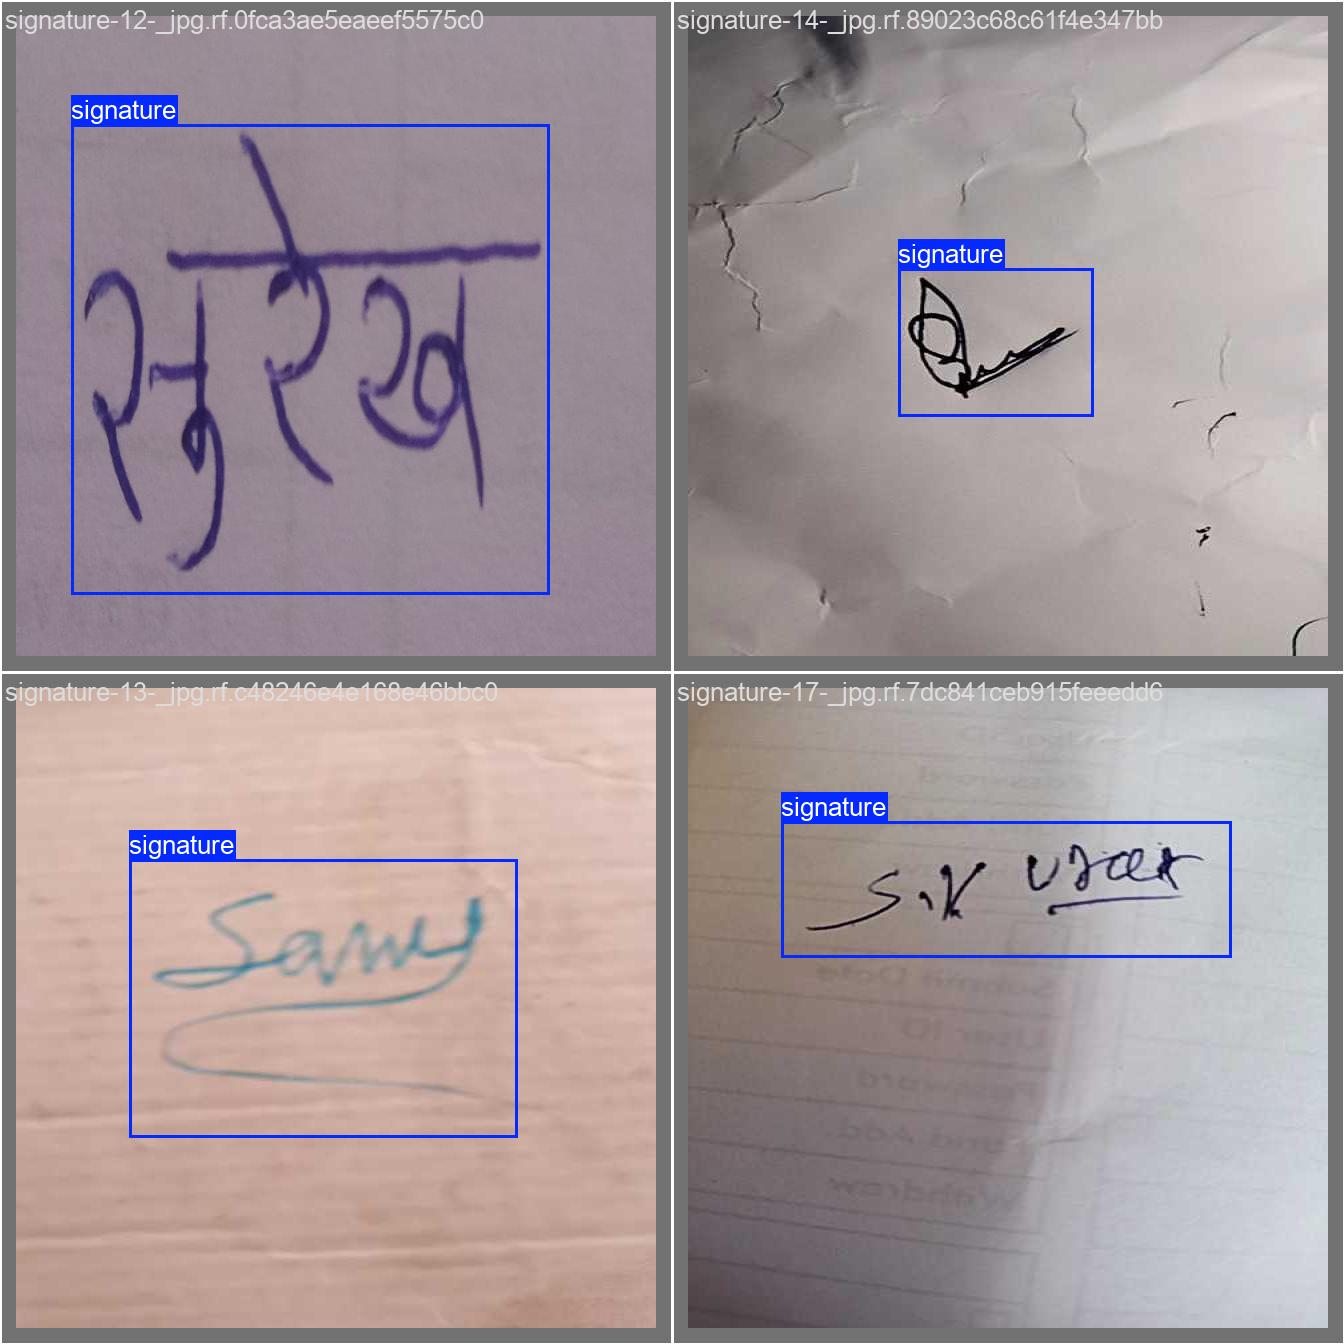 signature-12-_jpg.rf.0fca3ae5eaeef5575c0
signature
सुरेख
signature-14-_jpg.rf.89023c68c61f4e347bb
signature
signature-13-_jpg.rf.c48246e4e168e46bbc0
signature
Samy
signature-17-_jpg.rf.7dc841ceb915feeedd6
signature
S.K
Submit Date
User ID
Password
und Add
Withdraw